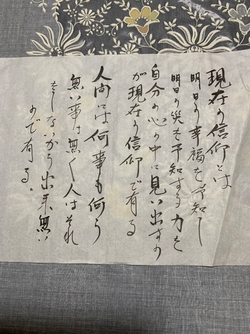 現存の信仰とは
明日の幸福を予知し
明日の災を予知する力を
自分の心の中に見い出すの
が現存の信仰で有る
人間には何事も何う
無い事は無く人はそれ
をしないから出来無い
ので有る、